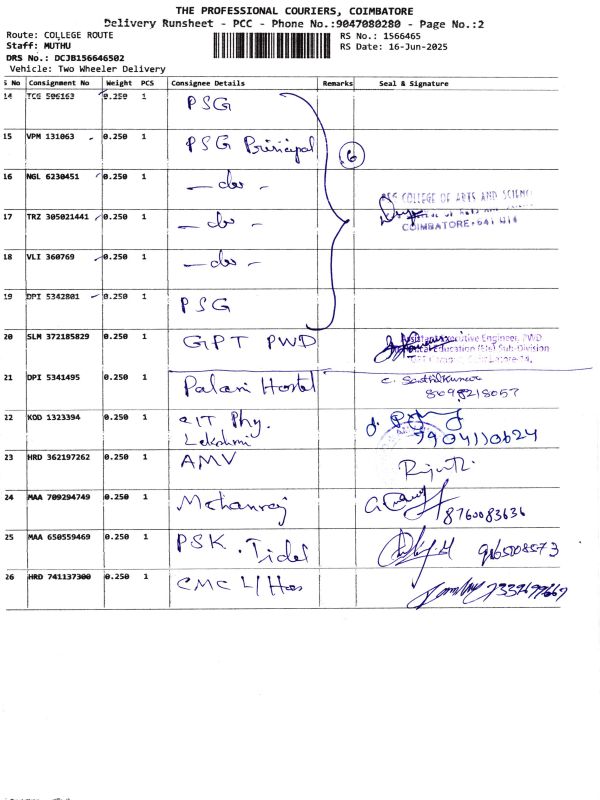 THE PROFESSIONAL COURIERS, COIMBATORE
Delivery Runsheet - PCC - Phone No.:9047080280 - Page No.:2
Route: COLLEGE ROUTE
Staff: MUTHU
DRS No.: DCJB156646502
Vehicle: Two Wheeler Delivery
RS No.: 1566465
RS Date: 16-Jun-2025
S No Consignment No Weight PCS Consignee Details Remarks Seal & Signature
14 TCG 506163 0.250 1 PSG
15 VPM 131063 0.250 1 PSG Principal
6
16 NGL 6230451 0.250 1 - do -
PSG COLLEGE OF ARTS AND SCIENCE
17 TRZ 305021441 0.250 1 - do -
COIMBATORE-641 014
18 VLI 360769 0.250 1 - do -
19 DPI 5342801 0.250 1 PSG
20 SLM 372185829 0.250 1 GPT PWD
Assistant Executive Engineer, PWD
Technical Education (Bld) Sub-Division
21 DPI 5341495 0.250 1 Palani Hostel C. Senthilkumar
8098218057
22 KOD 1323394 0.250 1 CIT Phy.
Lekshmi
9904110624
23 HRD 362197262 0.250 1 AMV
24 MAA 709294749 0.250 1 Mohanraj
8760083636
25 MAA 650559469 0.250 1 PSK. Tidel
26 HRD 741137300 0.250 1 CMC L/Hos